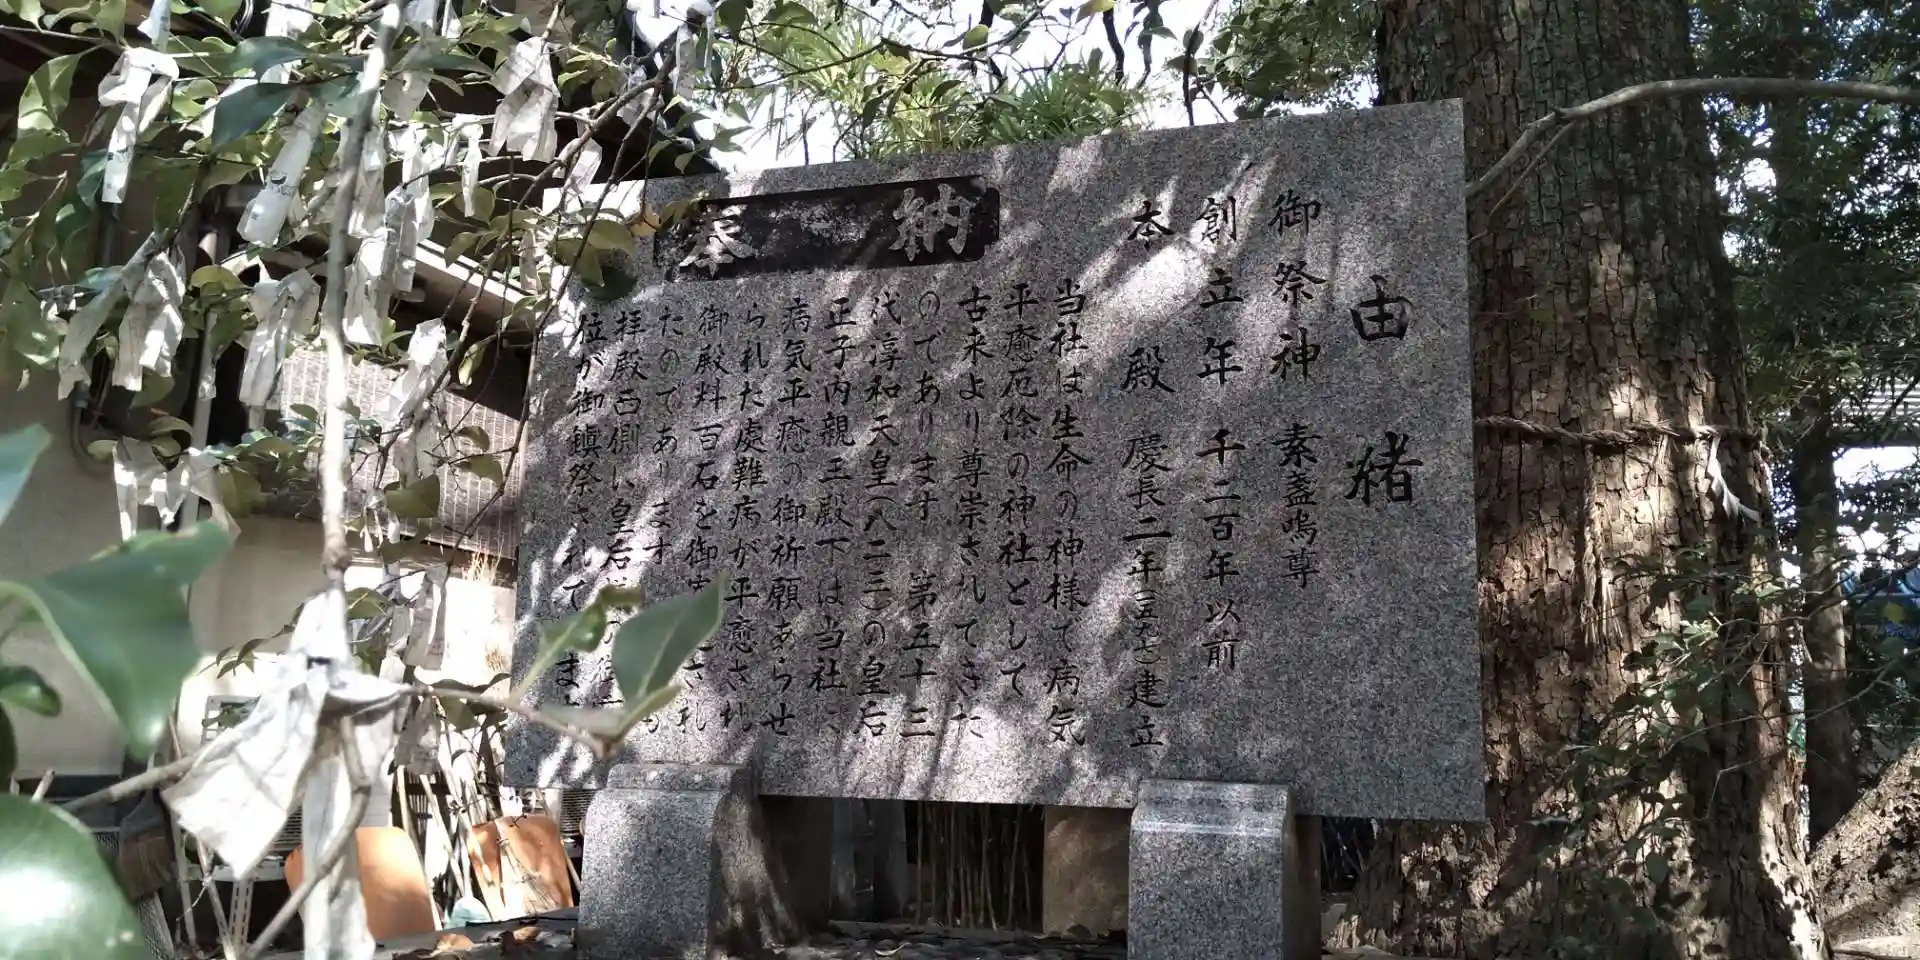 由緒
御祭神 素盞嗚尊
創立年 千二百年以前
本殿 慶長二年(一五九七)建立
当社は生命の神様で病気
平癒厄除の神社として
古来より尊崇されてきた
のであります 第五十三
代淳和天皇(八二三)の皇后
正子内親王殿下は当社に
病気平癒の御祈願あらせ
られた處難病が平癒され
御殿料百石を御
たのであります
拝殿西側に皇后
位が御鎮祭されて
奉納